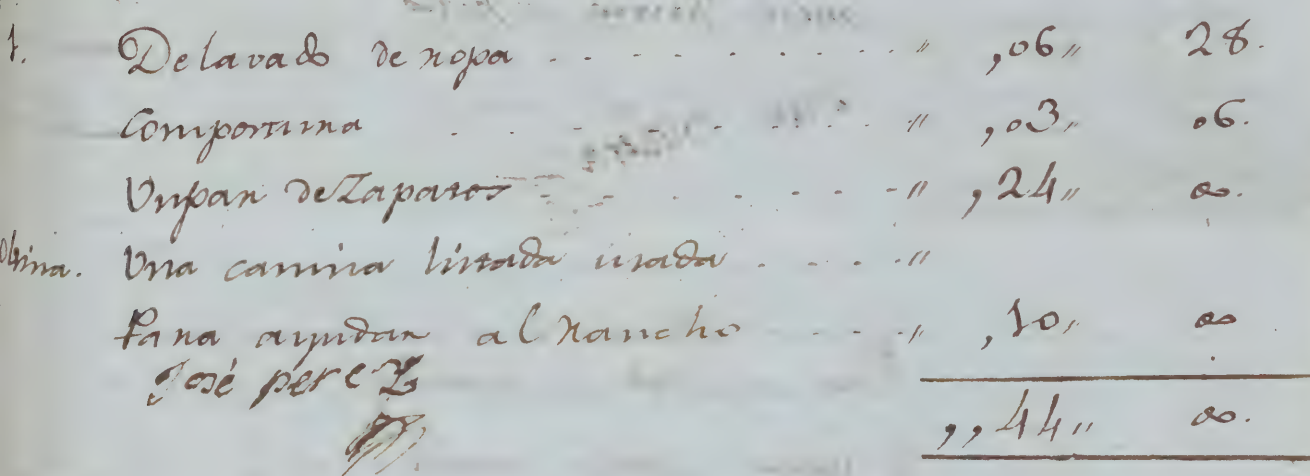 1. De lavado de ropa . . . . . . . . . . " ,06,, 28.
Compostura . . . . . . . . . " ,03,, 06.
Un par de Zapatos . . . . . . . " ,24,, 00.
Una camisa listada usada . . . . "
Para ayudar al Rancho . . . . " ,10,, 00
José perez
,,44,, 00.